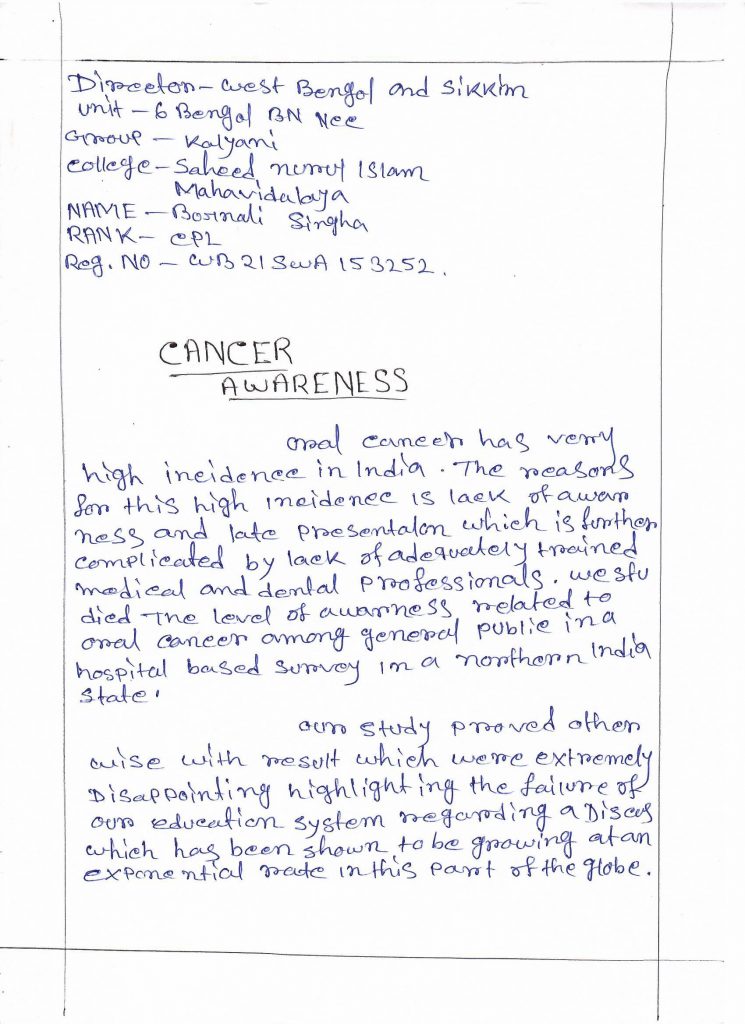 Director - West Bengal and Sikkim
Unit - 6 Bengal BN Ncc
Group - Kalyani
College - Saheed nurul Islam
Mahavidalaya
NAME - Bornali Singha
RANK - CPL
Reg. NO - WB21SWA153252.
CANCER
AWARENESS
oral cancer has very
high incidence in India. The reasons
for this high incidence is lack of awar
ness and late presentaion which is further
complicated by lack of adequately trained
medical and dental professionals. we stu
died The level of awarness related to
oral cancer among general public in a
hospital based survey in a northern India
state.
our study proved other
wise with result which were extremely
Disappointing highlighting the failure of
our education system regarding a Diseas
which has been shown to be growing at an
exponential rate in this part of the globe.